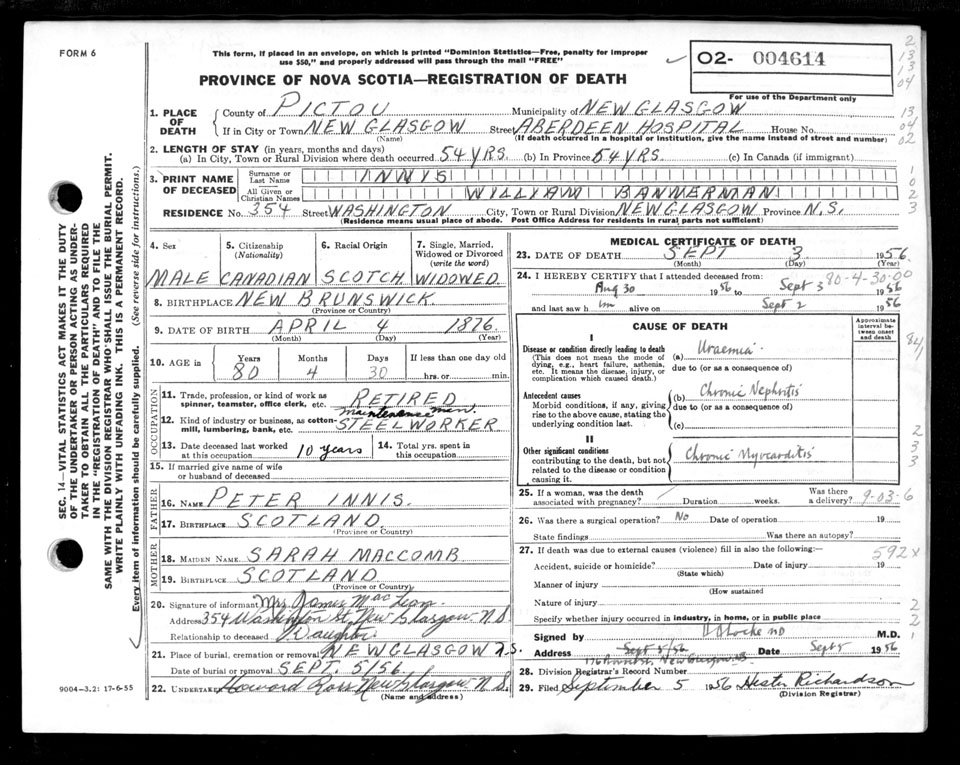 FORM 6
This form, if placed in an envelope, on which is printed "Dominion Statistics—Free, penalty for improper
use $50," and properly addressed will pass through the mail "FREE"
O2- 004614
For use of the Department only
PROVINCE OF NOVA SCOTIA—REGISTRATION OF DEATH
2
13
3
04
13
04
02
1
0
2
3
SEC. 14—VITAL STATISTICS ACT MAKES IT THE DUTY
OF THE UNDERTAKER OR PERSON ACTING AS UNDER-
TAKER TO OBTAIN ALL THE PARTICULARS REQUIRED
IN THE "REGISTRATION OF DEATH" AND TO FILE THE
SAME WITH THE DIVISION REGISTRAR WHO SHALL ISSUE THE BURIAL PERMIT.
WRITE PLAINLY WITH UNFADING INK. THIS IS A PERMANENT RECORD.
Every item of information should be carefully supplied. (See reverse side for instructions.)
1. PLACE OF DEATH
County of PICTOU Municipality of NEW GLASGOW
If in City or Town NEW GLASGOW Street ABERDEEN HOSPITAL House No.
(Name) (If death occurred in a hospital or institution, give the name instead of street and number)
2. LENGTH OF STAY (in years, months and days)
(a) In City, Town or Rural Division where death occurred 54 YRS. (b) In Province 54 YRS. (c) In Canada (if immigrant)
3. PRINT NAME OF DECEASED
Surname or Last Name INNIS
All Given or Christian Names WILLIAM BANNERMAN
RESIDENCE No. 354 Street WASHINGTON City, Town or Rural Division NEW GLASGOW Province N.S.
(Residence means usual place of abode. Post Office Address for residents in rural parts not sufficient)
4. Sex 5. Citizenship (Nationality) 6. Racial Origin 7. Single, Married, Widowed or Divorced (write the word)
MALE CANADIAN SCOTCH WIDOWED
8. BIRTHPLACE NEW BRUNSWICK
(Province or Country)
9. DATE OF BIRTH APRIL 4 1876
(Month) (Day) (Year)
10. AGE in Years Months Days If less than one day old
80 4 30 hrs. or min.
OCCUPATION
11. Trade, profession, or kind of work as spinner, teamster, office clerk, etc. RETIRED
maintenance men.
12. Kind of industry or business, as cotton-mill, lumbering, bank, etc. STEELWORKER
13. Date deceased last worked at this occupation 10 years 14. Total yrs. spent in this occupation
15. If married give name of wife or husband of deceased
FATHER
16. NAME PETER INNIS.
17. BIRTHPLACE SCOTLAND
(Province or Country)
MOTHER
18. MAIDEN NAME SARAH MACCOMB
19. BIRTHPLACE SCOTLAND
(Province or Country)
20. Signature of informant Mrs. James MacLean
Address 354 Washington St, New Glasgow N.S
Relationship to deceased Daughter
21. Place of burial, cremation or removal NEW GLASGOW N.S.
Date of burial or removal SEPT. 5/56
22. UNDERTAKER Howard Ross New Glasgow N.S.
(Name and address)
9004-3.2: 17-6-55
MEDICAL CERTIFICATE OF DEATH
23. DATE OF DEATH SEPT 3 1956
(Month) (Day) (Year)
80-4-30-00
24. I HEREBY CERTIFY that I attended deceased from
Aug 30 1956 to Sept 3 1956
and last saw him alive on Sept 2 1956
CAUSE OF DEATH
Approximate interval between onset and death
I
Disease or condition directly leading to death
(This does not mean the mode of dying, e.g., heart failure, asthenia, etc. It means the disease, injury, or complication which caused death.)
(a) Uraemia
due to (or as a consequence of)
Antecedent causes
Morbid conditions, if any, giving rise to the above cause, stating the underlying condition last.
(b) Chronic Nephritis
due to (or as a consequence of)
(c)
II
Other significant conditions
contributing to the death, but not related to the disease or condition causing it.
Chronic Myocarditis
2
3
3
25. If a woman, was the death associated with pregnancy? Duration weeks. Was there a delivery?
9-03-6
26. Was there a surgical operation? No Date of operation 19
State findings Was there an autopsy?
27. If death was due to external causes (violence) fill in also the following:—
592x
Accident, suicide or homicide? Date of injury 19
(State which)
Manner of injury
(How sustained
Nature of injury
Specify whether injury occurred in industry, in home, or in public place
2
2
1
Signed by M.D.
Sept 5/56
Address New Glasgow Date Sept 5 1956
28. Division Registrar's Record Number
29. Filed September 5 1956 Hester Richardson
(Division Registrar)